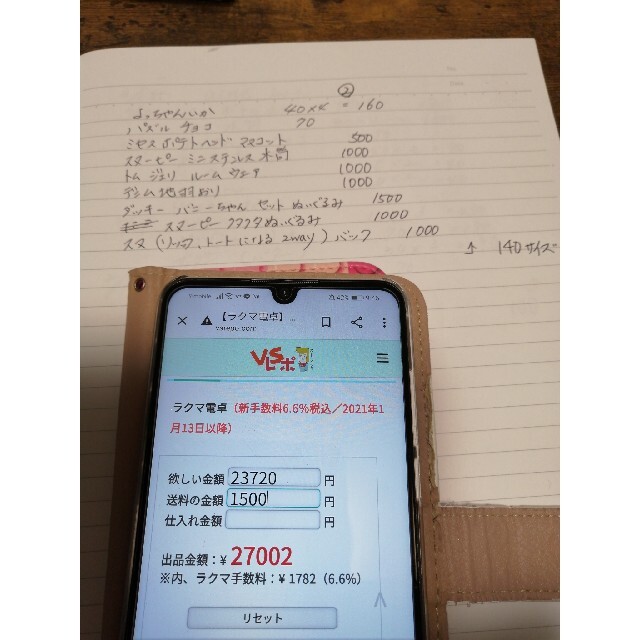 ②
よっちゃんいか 40×4 = 160
パズル チョコ 70
ミセス ポテトヘッド マスコット 500
スヌーピー ミニステンレス水筒 1000
トム ジェリ ルームウェア 1000
デニム地羽おり 1000
ダッキー バニーちゃん セット ぬいぐるみ 1500
スヌーピー クタクタぬいぐるみ 1000
スヌ ( トートになる 2way ) バック 1000
↑ 140サイズ
【ラクマ電卓】...
 VSレポ
ラクマ電卓（新手数料6.6%税込／2021年1
月13日以降）
欲しい金額 23720 円
送料の金額 1500 円
仕入れ金額 円
出品金額：¥ 27002
※内、ラクマ手数料：¥ 1782（6.6%）
リセット